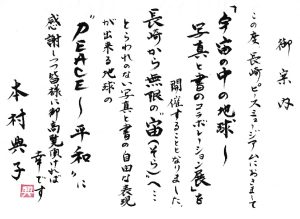 御案内
この度 長崎ピースミュージアムにおきまして
"宇宙の中の地球〜
写真と書のコラボレーション展"を
開催することとなりました。
長崎から無限の"宙(そら)"へ…
とらわれのない写真と書の自由な表現
が出来る地球の
"PEACE〜平和"に
感謝しつつ皆様に御高覧頂ければ
幸です
本村典子